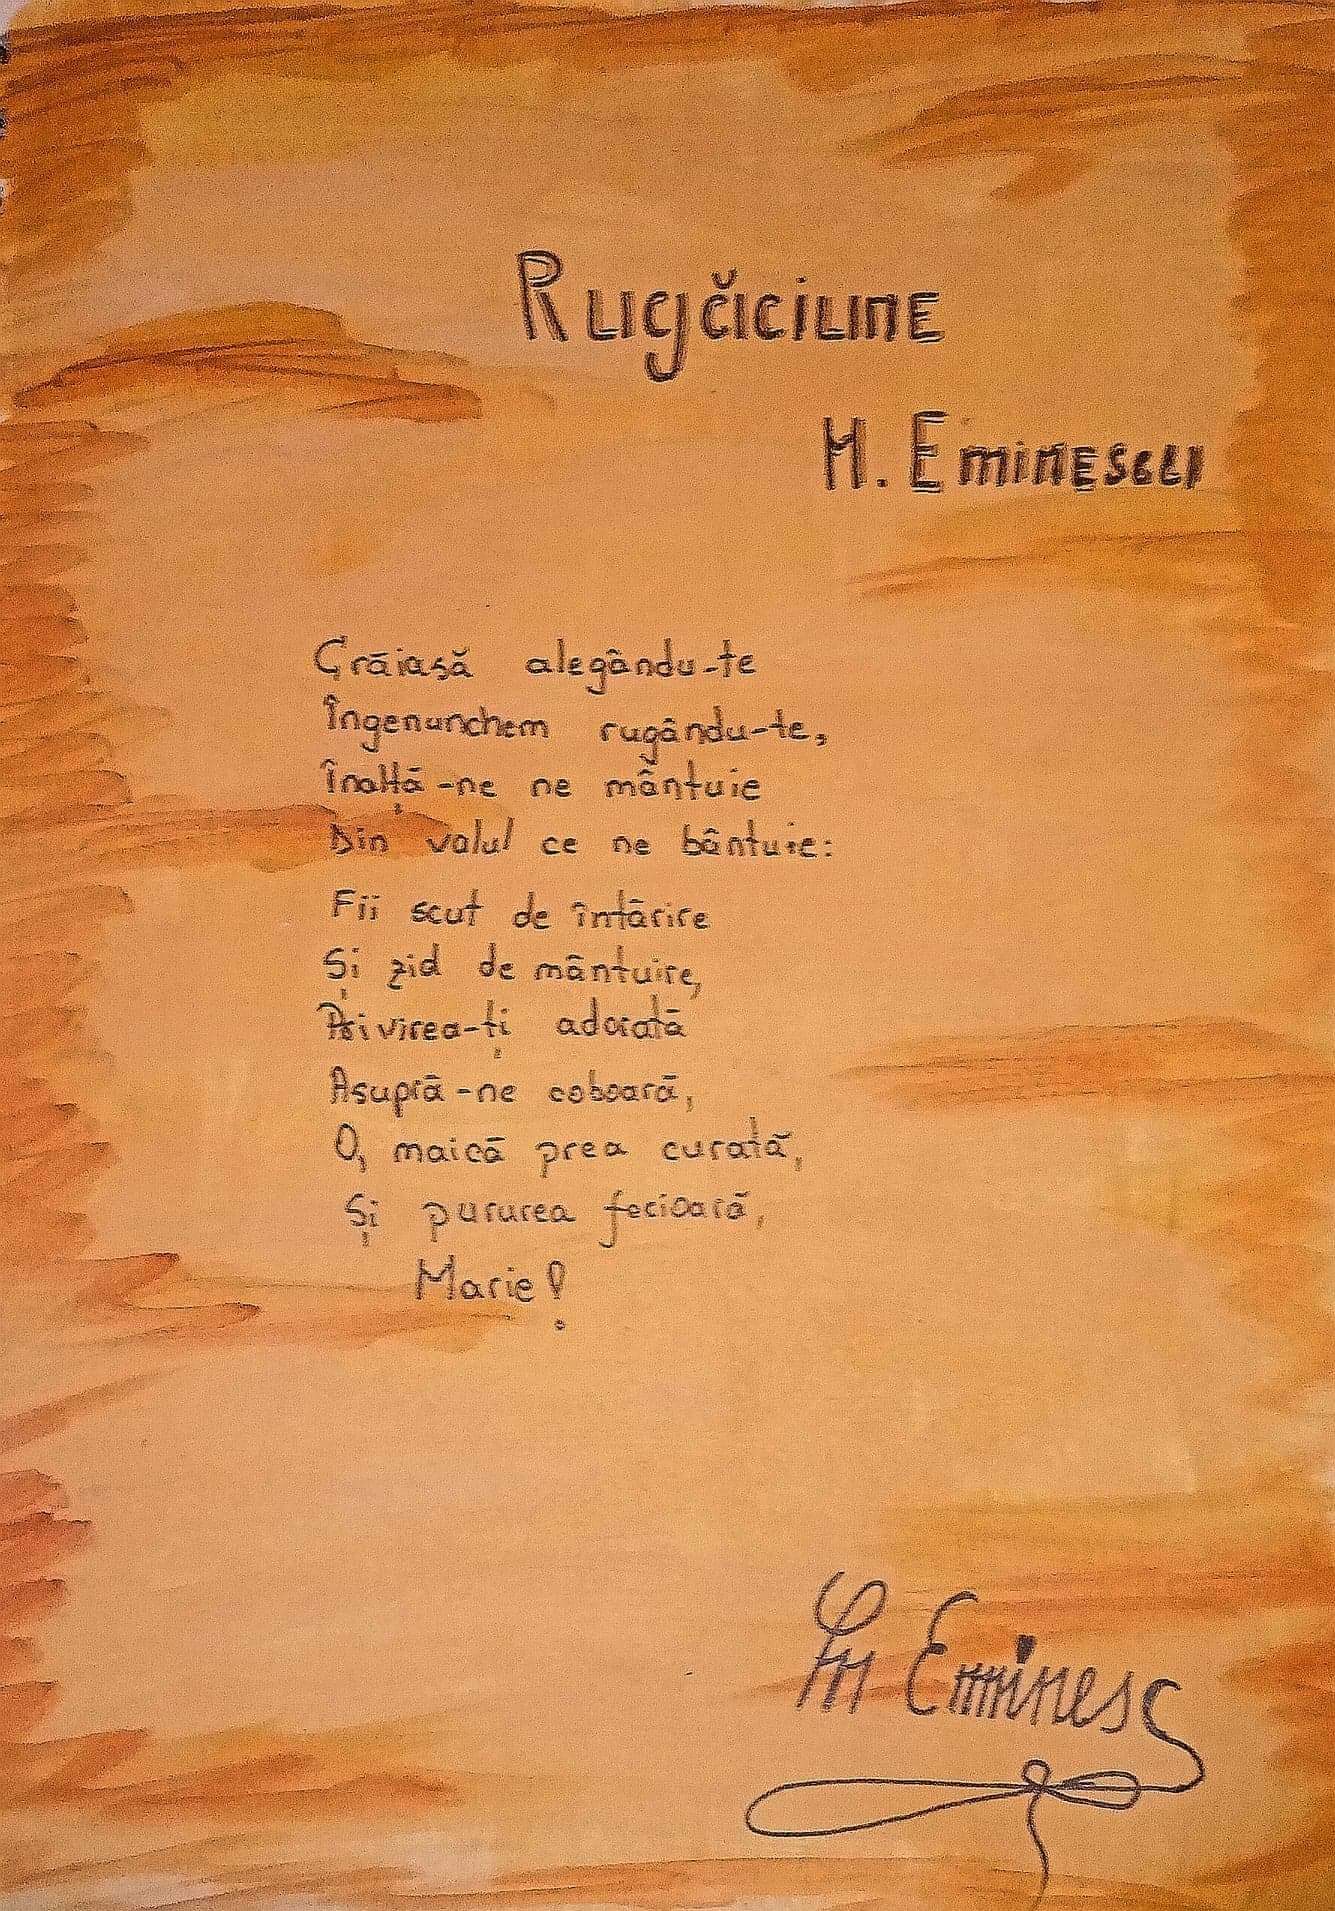 Rugăciune
M. Eminescu
Crăiasă alegându-te
Îngenunchem rugându-te,
Înalță-ne ne mântuie
Din valul ce ne bântuie:
Fii scut de întărire
Și zid de mântuire,
Privirea-ți adorată
Asupră-ne coboară,
O, maică prea curată,
Și pururea fecioară,
Marie!
M Eminesc